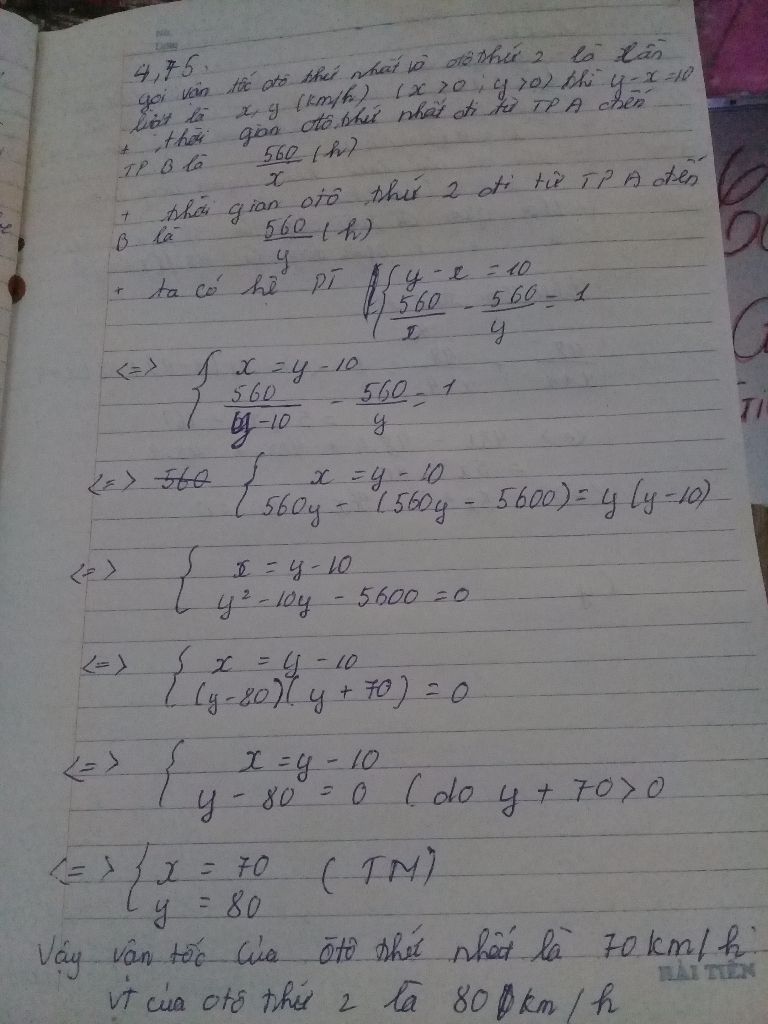 4,75.
gọi vận tốc ôtô thứ nhất và ôtô thứ 2 là lần
lượt là x, y (km/h) (x > 0 ; y > 0) thì y - x = 10
+ thời gian ôtô thứ nhất đi từ TP A đến
TP B là 560/x (h)
+ thời gian ôtô thứ 2 đi từ TP A đến
B là 560/y (h)
+ ta có hệ PT { y - x = 10
560/x - 560/y = 1
<=> { x = y - 10
560/(y-10) - 560/y = 1
<=> 560 { x = y - 10
560y - (560y - 5600) = y(y-10)
<=> { x = y - 10
y² - 10y - 5600 = 0
<=> { x = y - 10
(y-80)(y+70) = 0
<=> { x = y - 10
y - 80 = 0 (do y + 70 > 0
<=> { x = 70 (TM)
y = 80
Vậy vận tốc của ôtô thứ nhất là 70 km/h
HẢI TIẾN
VT của ôtô thứ 2 là 80 km/h